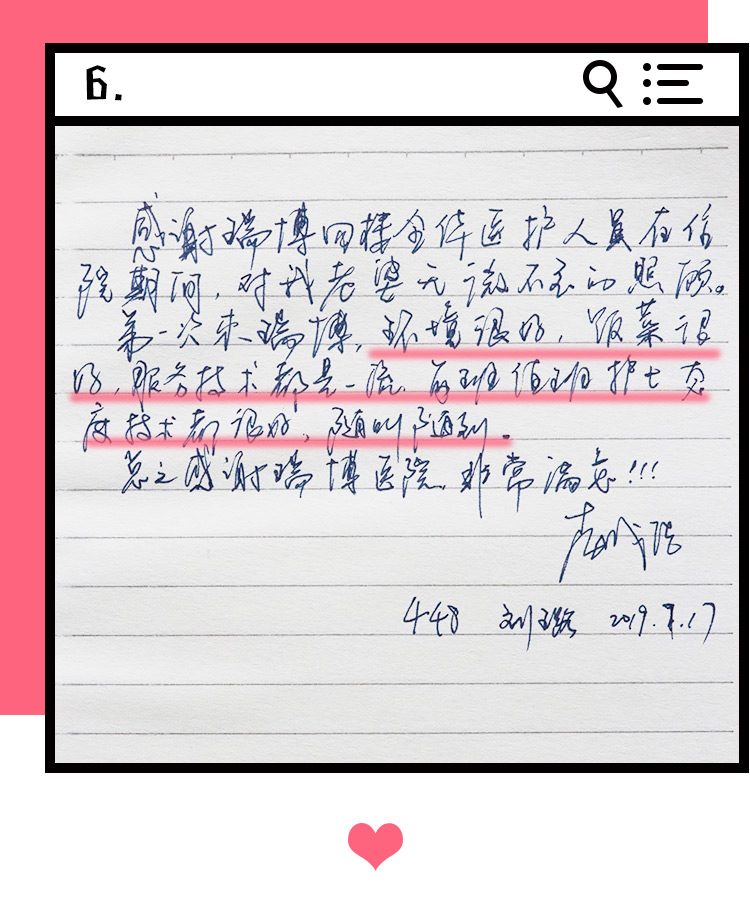 6.
感谢瑞博四楼全体医护人员在住
院期间，对我老婆无微不至的照顾。
第一次来瑞博，环境很好，饭菜很
好，服务技术都是一流，每班值班护士态
度技术都很好，随叫随到。
总之感谢瑞博医院，非常满意!!!
448 刘璐 2019.7.17